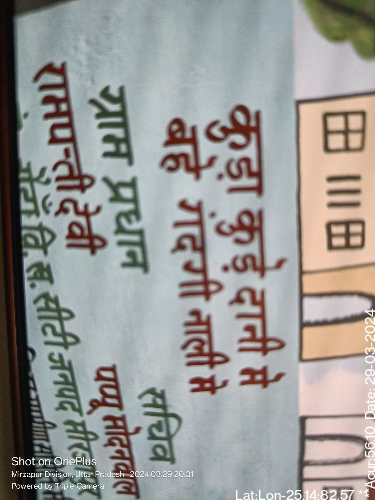 कुड़ा कुड़े दानी मे
बहे गदगी नाली मे
ग्राम प्रधान
रामपत्ती देवी
सचिव
पप्पू
वि. ख. सीटी जनपद
Shot on OnePlus
Mirzapur Division, Uttar Pradesh 2024.03.29 20:31
Powered by Triple Camera
Lat:Lon-25.14:82.57 **
Agur:5610 Date: 29-03-2024